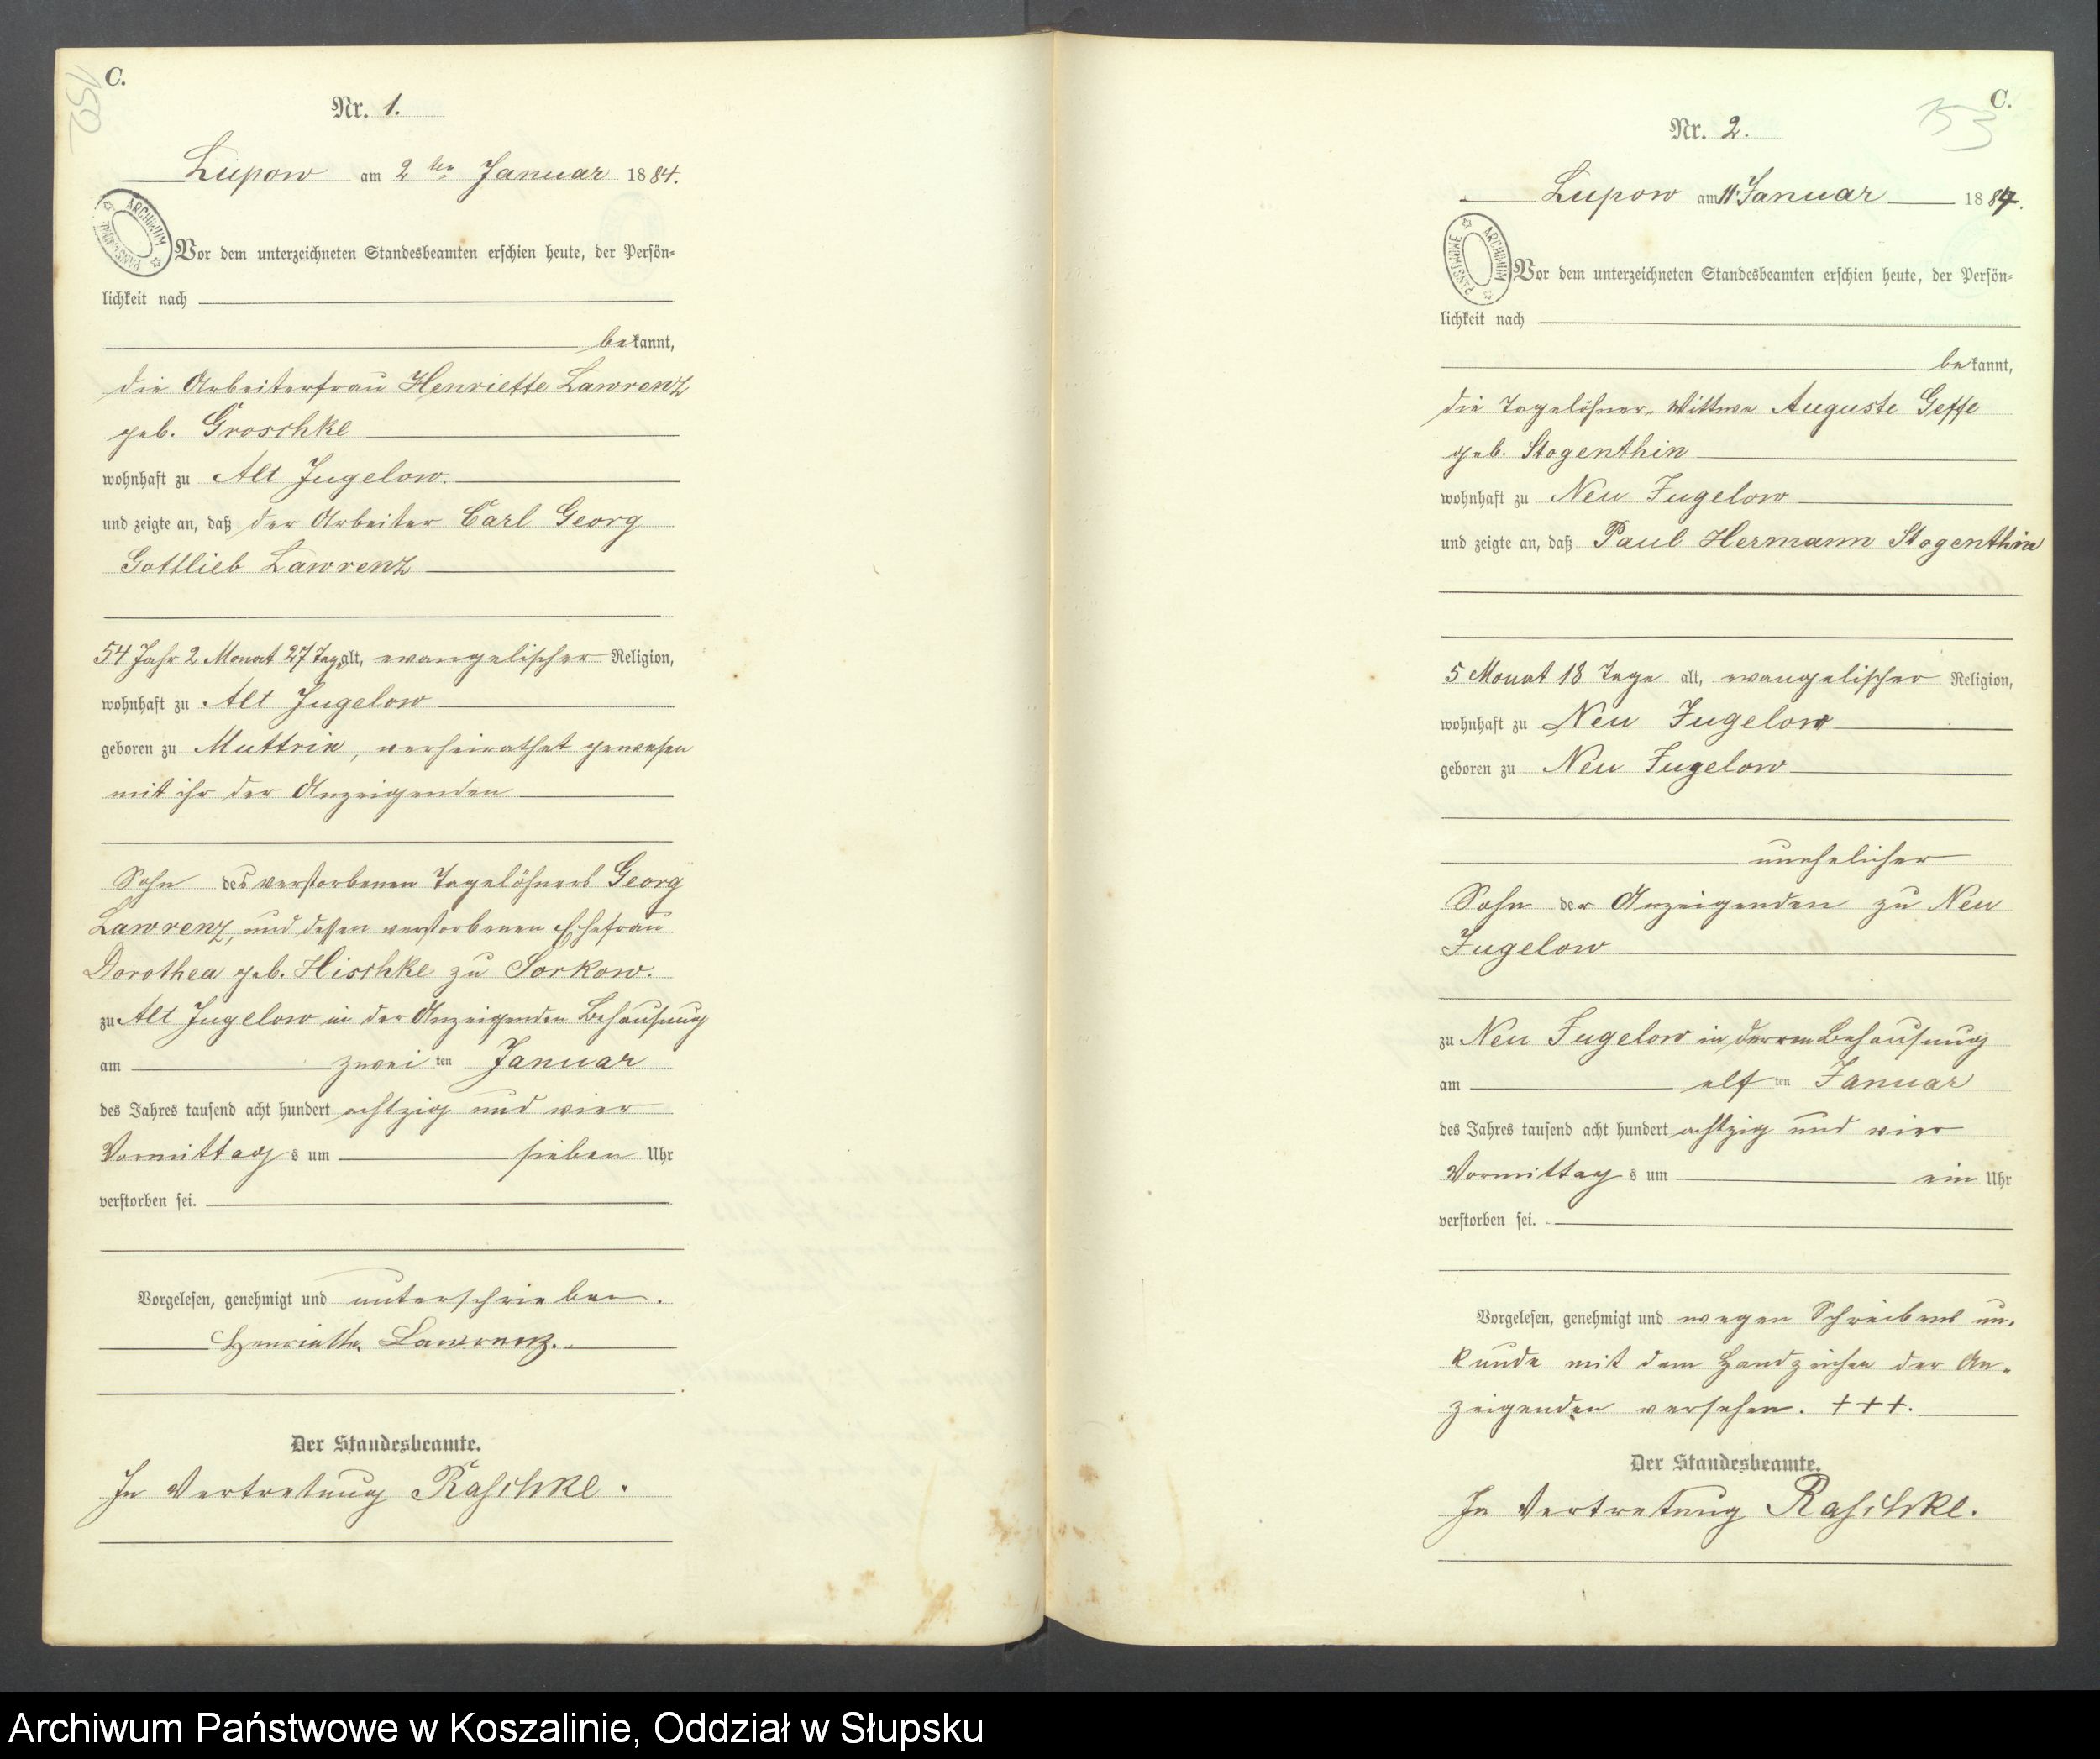 C.
152
Nr. 1.
Lupow am 2ten Januar 1884.
ARCHIWUM PAŃSTWOWE
Vor dem unterzeichneten Standesbeamten erschien heute, der Persön-
lichkeit nach
bekannt,
die Arbeiterfrau Henriette Lawrenz
geb. Groschke
wohnhaft zu Alt Jugelow.
und zeigte an, daß der Arbeiter Carl Georg
Gottlieb Lawrenz
54 Jahr 2 Monat 27 Tage alt, evangelischer Religion,
wohnhaft zu Alt Jugelow
geboren zu Muttrin, verheirathet gewesen
mit ihr der Anzeigenden
Sohn des verstorbenen Tagelöhners Georg
Lawrenz, und dessen verstorbenen Ehefrau
Dorothea geb. Hischke zu Sorkow.
zu Alt Jugelow in der Anzeigenden Behausung
am zwei ten Januar
des Jahres tausend acht hundert achtzig und vier
Vormittags um sieben Uhr
verstorben sei.
Vorgelesen, genehmigt und unterschrieben.
Henriette Lawrenz.
Der Standesbeamte.
In Vertretung Raschke.
C.
153
Nr. 2.
Lupow am 11. Januar 1884.
ARCHIWUM PAŃSTWOWE
Vor dem unterzeichneten Standesbeamten erschien heute, der Persön-
lichkeit nach
bekannt,
die Tagelöhner-Wittwe Auguste Geffe
geb. Stogenthin
wohnhaft zu Neu Jugelow
und zeigte an, daß Paul Hermann Stogenthin
5 Monat 18 Tage alt, evangelischer Religion,
wohnhaft zu Neu Jugelow
geboren zu Neu Jugelow
unehelicher
Sohn der Anzeigenden zu Neu
Jugelow
zu Neu Jugelow in derren Behausung
am elf ten Januar
des Jahres tausend acht hundert achtzig und vier
Vormittags um ein Uhr
verstorben sei.
Vorgelesen, genehmigt und wegen Schreibens un-
kunde mit dem Handzeichen der An-
zeigenden versehen. +++.
Der Standesbeamte.
In Vertretung Raschke.
Archiwum Państwowe w Koszalinie, Oddział w Słupsku